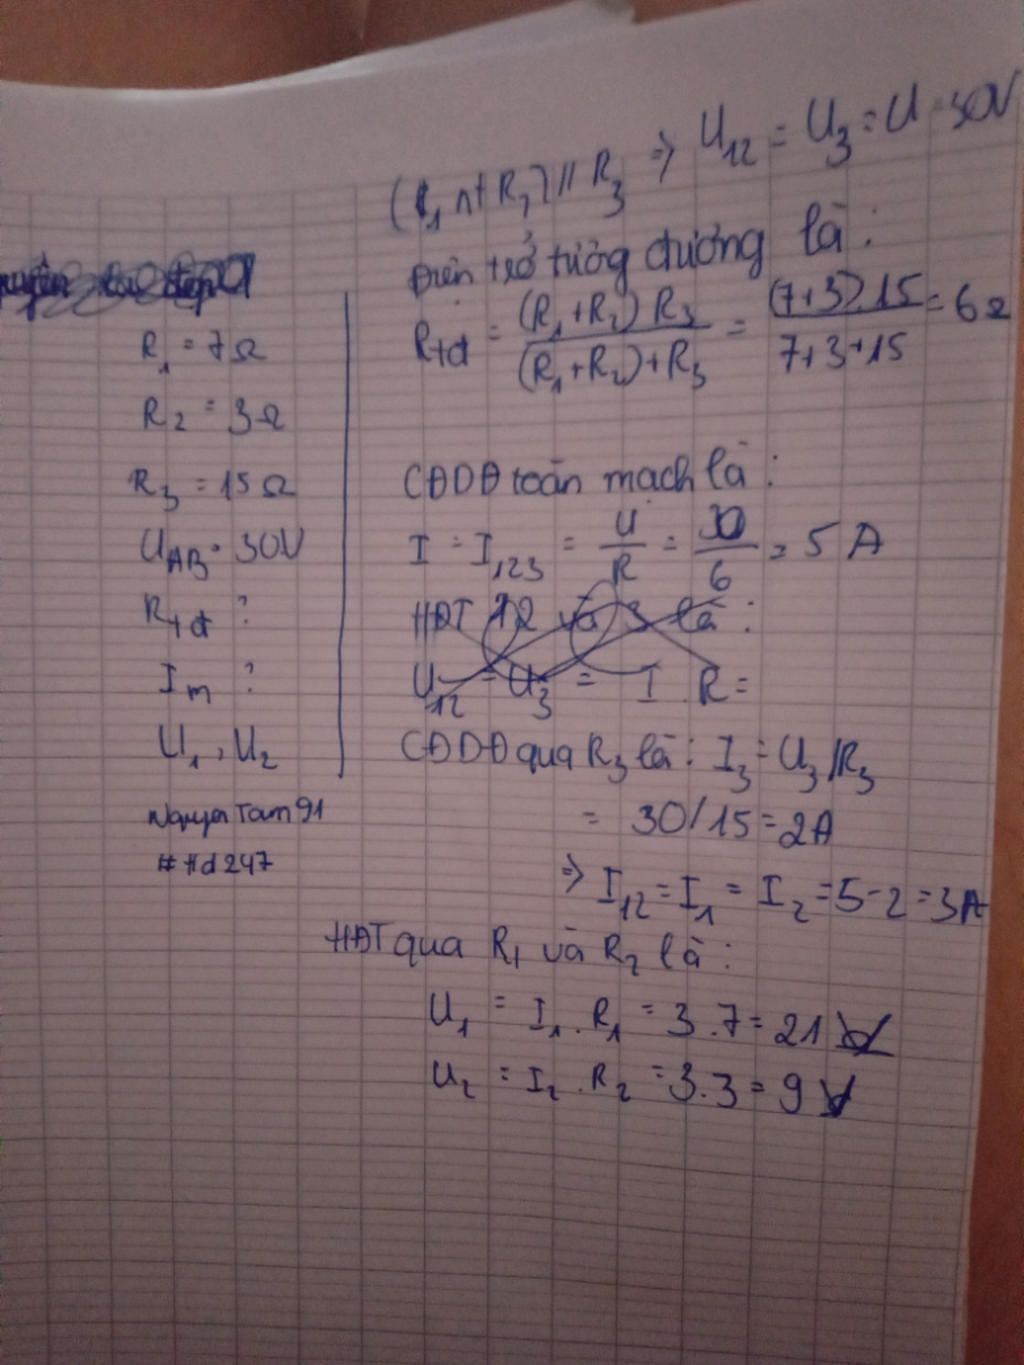 R₁ = 7Ω
R₂ = 3Ω
R₃ = 15Ω
U_AB = 30V
Rtđ ?
Im ?
U₁, U₂
NguyenTam91
#Hd247
(R₁ nt R₂) // R₃ => U₁₂ = U₃ = U = 30V
Điện trở tương đương là:
Rtđ = (R₁+R₂).R₃ / (R₁+R₂)+R₃ = (7+3).15 / 7+3+15 = 6Ω
CĐDĐ toàn mạch là:
I = I₁₂₃ = U/R = 30/6 = 5 A
HĐT 12 và 3 là:
U₁₂ = U₃ = I.R =
CĐDĐ qua R₃ là: I₃ = U₃/R₃
= 30/15 = 2A
=> I₁₂ = I₁ = I₂ = 5-2 = 3A
HĐT qua R₁ và R₂ là:
U₁ = I₁.R₁ = 3.7 = 21 V
U₂ = I₂.R₂ = 3.3 = 9 V